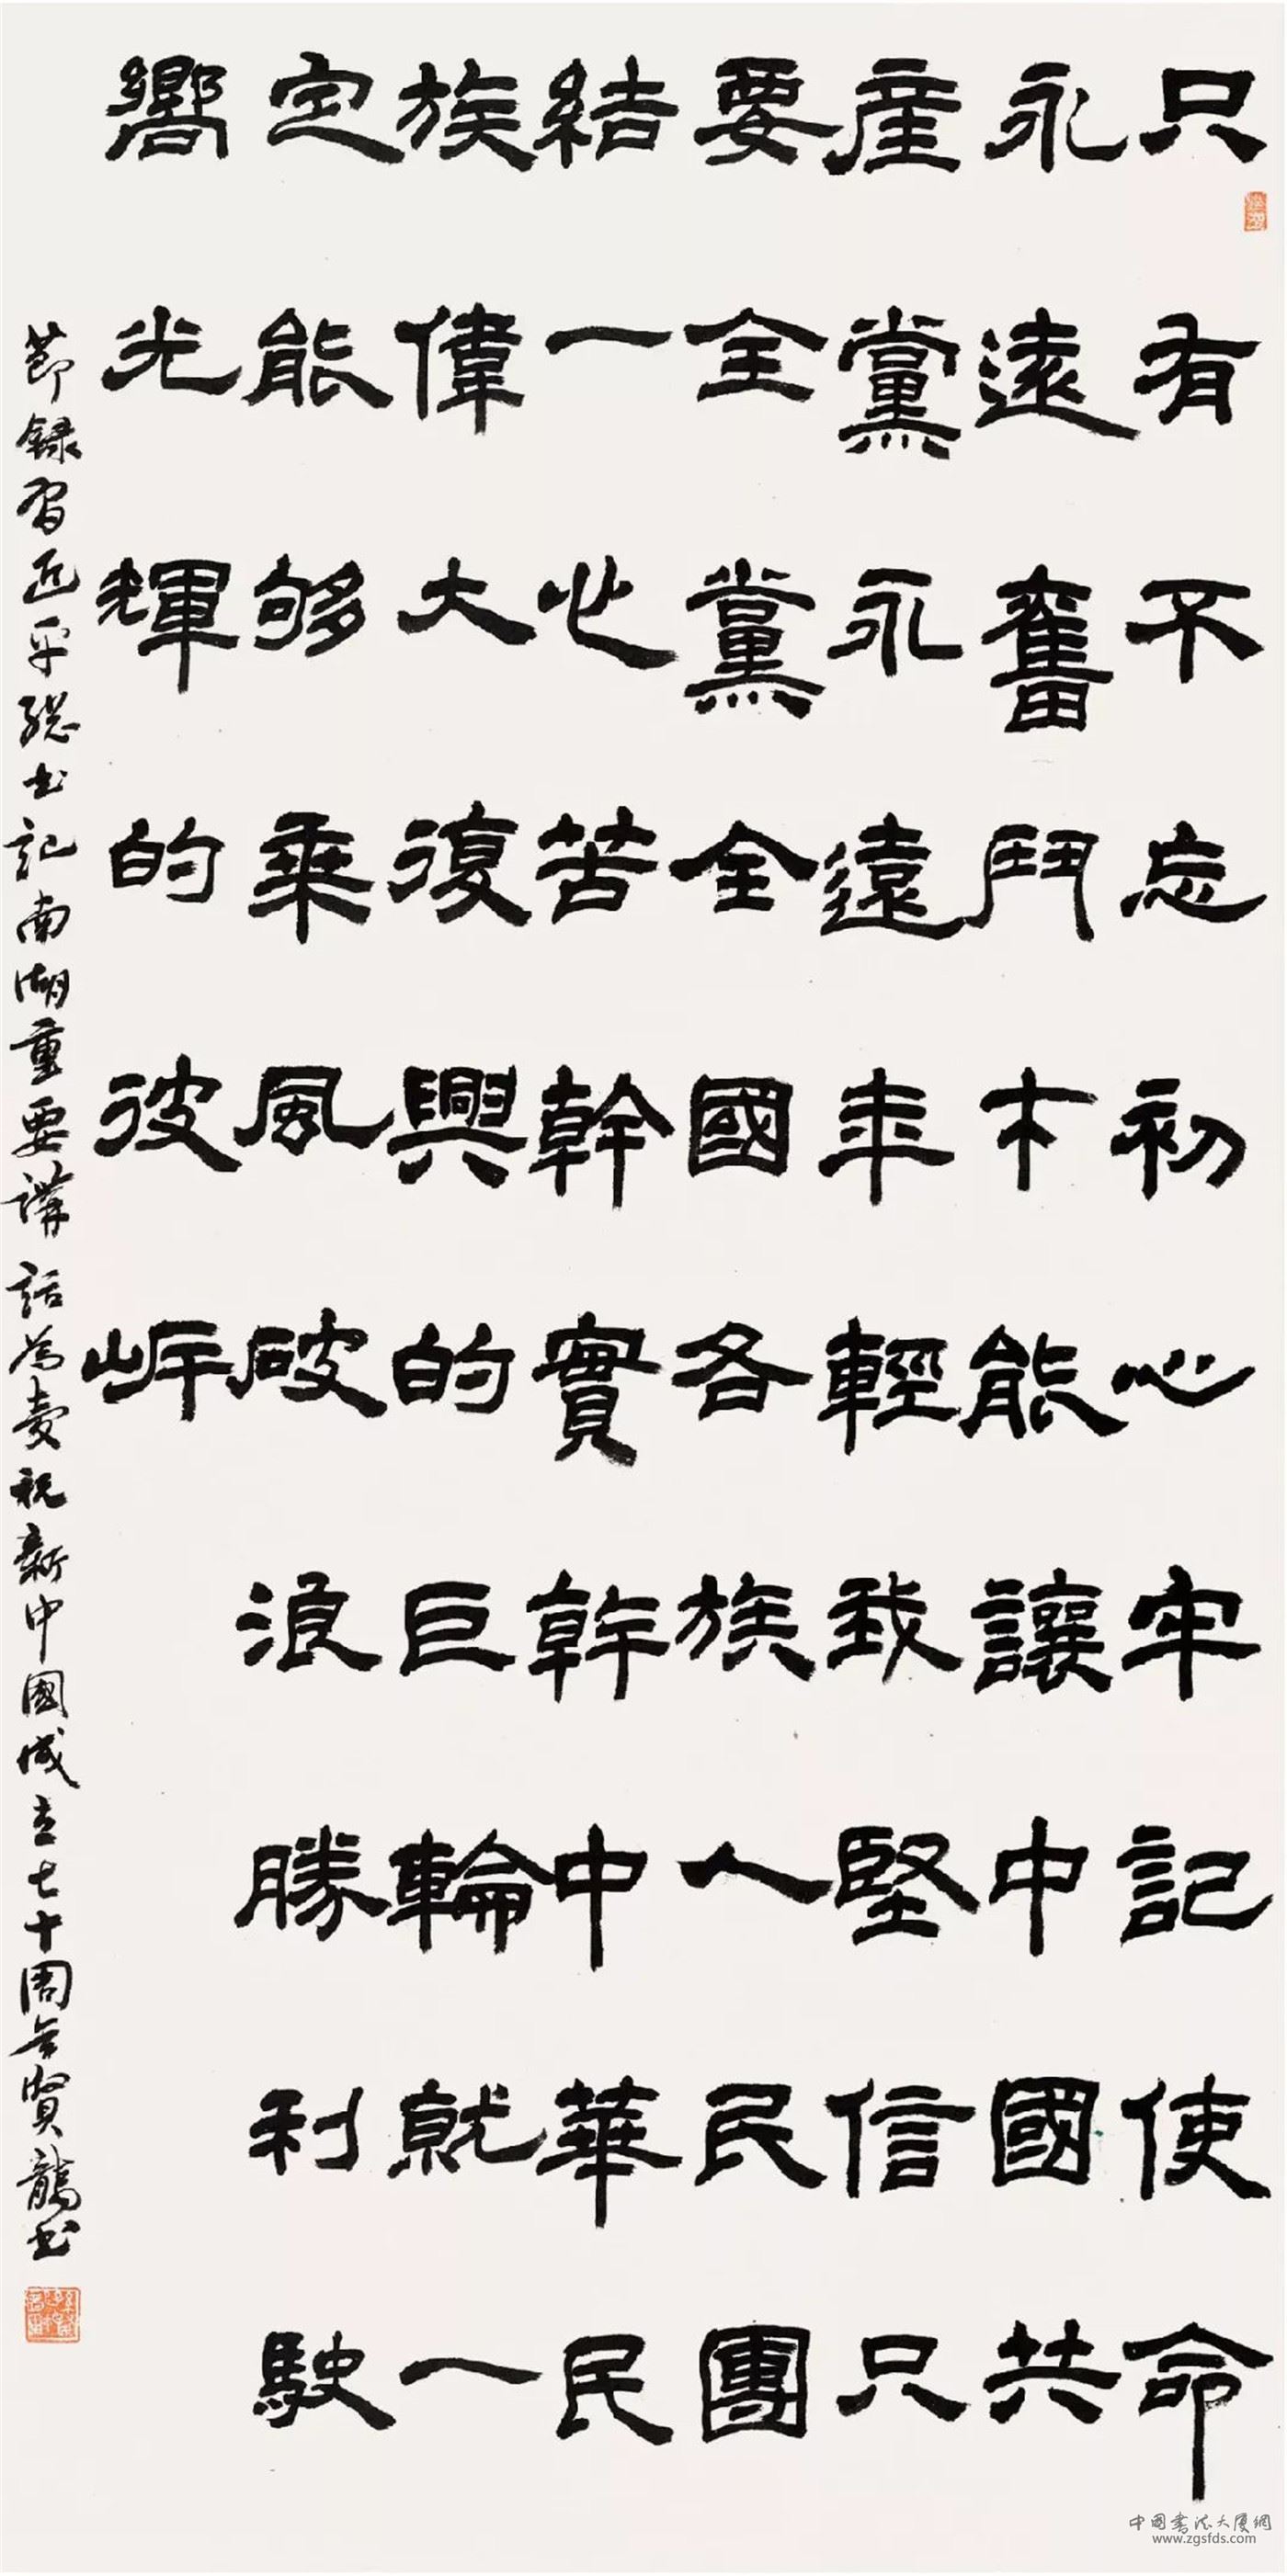 只有不忘初心牢記使命
永遠奮鬥才能讓中國共
産黨永遠年輕我堅信只
要全黨全國各族人民團
結一心苦幹實幹中華民
族偉大復興的巨輪就一
定能够乘風破浪勝利駛
嚮光輝的彼岸
節録習近平総書記南湖重要講話為慶祝新中國成立七十周年賢龍書
中国書法大厦網
www.zgsfds.com